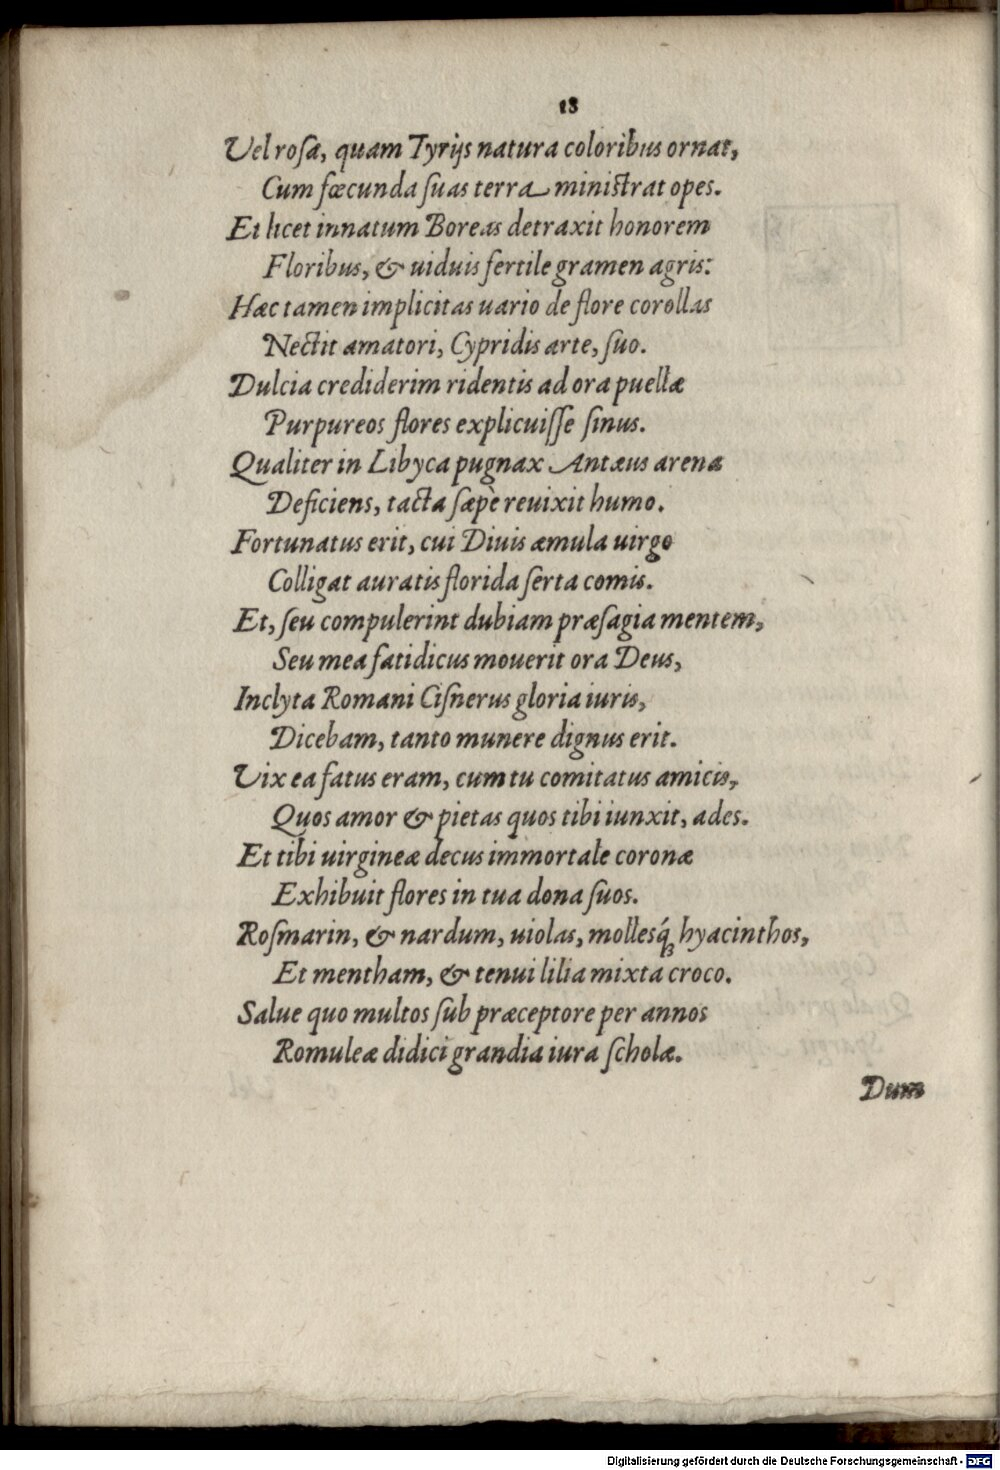 18
Vel rosa, quam Tyrijs natura coloribus ornat,
Cum fœcunda suas terra ministrat opes.
Et licet innatum Boreas detraxit honorem
Floribus, & uiduis fertile gramen agris:
Hæc tamen implicitas uario de flore corollas
Nectit amatori, Cypridis arte, suo.
Dulcia crediderim ridentis ad ora puellæ
Purpureos flores explicuisse sinus.
Qualiter in Libyca pugnax Antæus arena
Deficiens, tacta sæpè reuixit humo.
Fortunatus erit, cui Diuis æmula uirgo
Colligat auratis florida serta comis.
Et, seu compulerint dubiam præsagia mentem,
Seu mea fatidicus mouerit ora Deus,
Inclyta Romani Cisnerus gloria iuris,
Dicebam, tanto munere dignus erit.
Vix ea fatus eram, cum tu comitatus amicis,
Quos amor & pietas quos tibi iunxit, ades.
Et tibi uirgineæ decus immortale coronæ
Exhibuit flores in tua dona suos.
Rosmarin, & nardum, uiolas, mollesq́; hyacinthos,
Et mentham, & tenui lilia mixta croco.
Salue quo multos sub præceptore per annos
Romuleæ didici grandia iura scholæ.
Dum
Digitalisierung gefördert durch die Deutsche Forschungsgemeinschaft - DFG